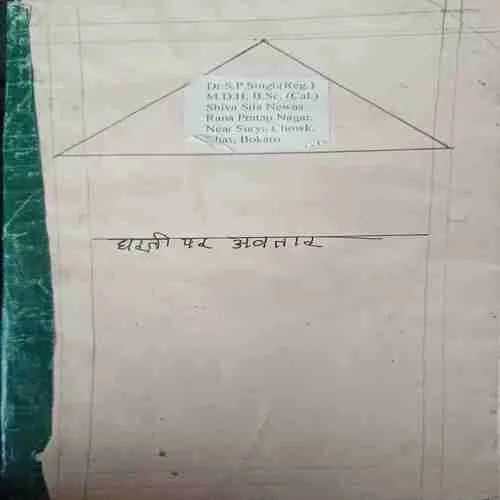 Dr.S.P.Singh(Reg.)
M.D.H, B.Sc. (Cal.)
Shiva Sita Newas
Rana Pratap Nagar,
Near Surya Chowk,
Chas, Bokaro
धरती पर अवतार